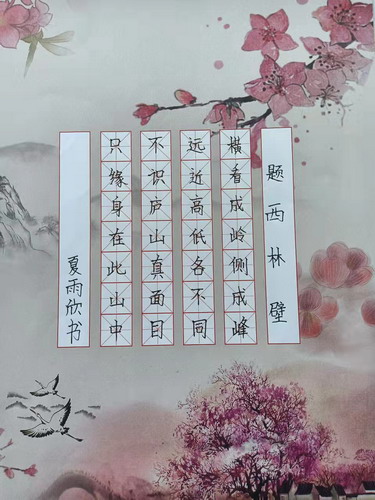 题西林壁
横看成岭侧成峰
远近高低各不同
不识庐山真面目
只缘身在此山中
夏雨欣书